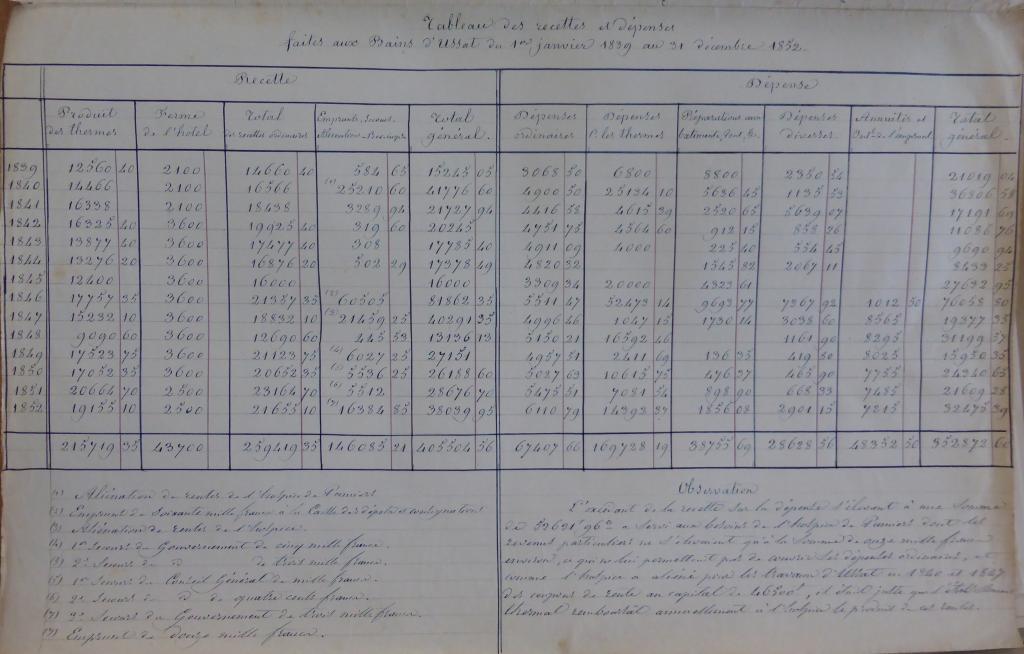 Tableau des recettes et dépenses
faites aux Bains d'Ussat du 1er janvier 1839 au 31 décembre 1852.
Recette Dépense
Produit des thermes Ferme de l'hotel Total des recettes ordinaires Emprunts, Secours, Total général. Dépenses ordinaires Dépenses p. les thermes Réparations aux bâtiments, &c. Dépenses diverses Annuités et Int. de l'emprunt Total général
1839 12560 40 2100 14660 40 584 65 15245 05 3068 50 6800 8800 2350 54 21019 04
1840 14466 2100 16566 (1) 25210 60 41776 60 4900 50 25134 10 5636 45 1135 53 36806 58
1841 16338 2100 18438 3289 94 21727 94 4416 58 4615 39 2520 65 5639 07 17191 69
1842 16325 40 3600 19925 40 319 60 20245 4751 75 4564 60 912 15 858 26 11086 76
1843 13877 40 3600 17477 40 308 17785 40 4911 09 4000 225 40 554 45 9690 94
1844 13276 20 3600 16876 20 502 29 17378 49 4820 32 1545 82 2067 11 8433 25
1845 12400 3600 16000 16000 3309 34 20000 4323 61 27632 95
1846 17757 35 3600 21357 35 (2) 60505 81862 35 5511 47 52473 14 9693 77 7367 92 1012 50 76058 80
1847 15232 10 3600 18832 10 (3) 21459 25 40291 35 4996 46 1047 15 1730 14 3038 60 8565 19377 35
1848 9090 60 3600 12690 60 445 53 13136 13 5150 21 16592 46 1161 90 8295 31199 57
1849 17523 75 3600 21123 75 (4) 6027 25 27151 4957 51 2411 69 136 35 419 50 8025 15950 35
1850 17052 35 3600 20652 35 (5) 5536 25 26188 60 5027 63 10615 75 476 37 465 90 7755 24340 65
1851 20664 70 2500 23164 70 (6) 5512 28676 70 5475 51 7081 54 898 90 668 33 7485 21609 28
1852 19155 10 2500 21655 10 (7) 16384 85 38039 95 6110 79 14392 37 1856 08 2901 15 7215 32475 39
215719 35 43700 259419 35 146085 21 405504 56 67407 66 169728 19 38755 69 28628 56 48352 50 352872 60
(1) Aliénation de rentes de l'hospice de Pamiers
(2) Emprunt de Soixante mille francs à la Caisse des dépots et consignations
(3) Aliénation de rentes de l'hospice.
(4) 1er Secours du Gouvernement de cinq mille francs.
(5) 2e Secours du d° de trois mille francs.
(6) 1er Secours du Conseil Général de mille francs.
(6) 2e Secours du d° de quatre cents francs.
(7) 3e Secours du Gouvernement de trois mille francs.
(7) Emprunt de douze mille francs.
Observation
L'excédant de la recette sur la dépense s'élevant à une Somme
de 52631f 96c a Servi aux besoins de l'hospice de Pamiers dont les
revenus particuliers ne s'élevaient qu'à la Somme de onze mille francs
environ, ce qui ne lui permettent pas de couvrir ses dépenses ordinaires, et
comme l'hospice a aliéné pour les travaux d'Ussat en 1840 et 1847
des coupons de rente au capital de 46500f, il était juste que l'
thermal remboursat annuellement à l'hospice le produit de ces rentes.